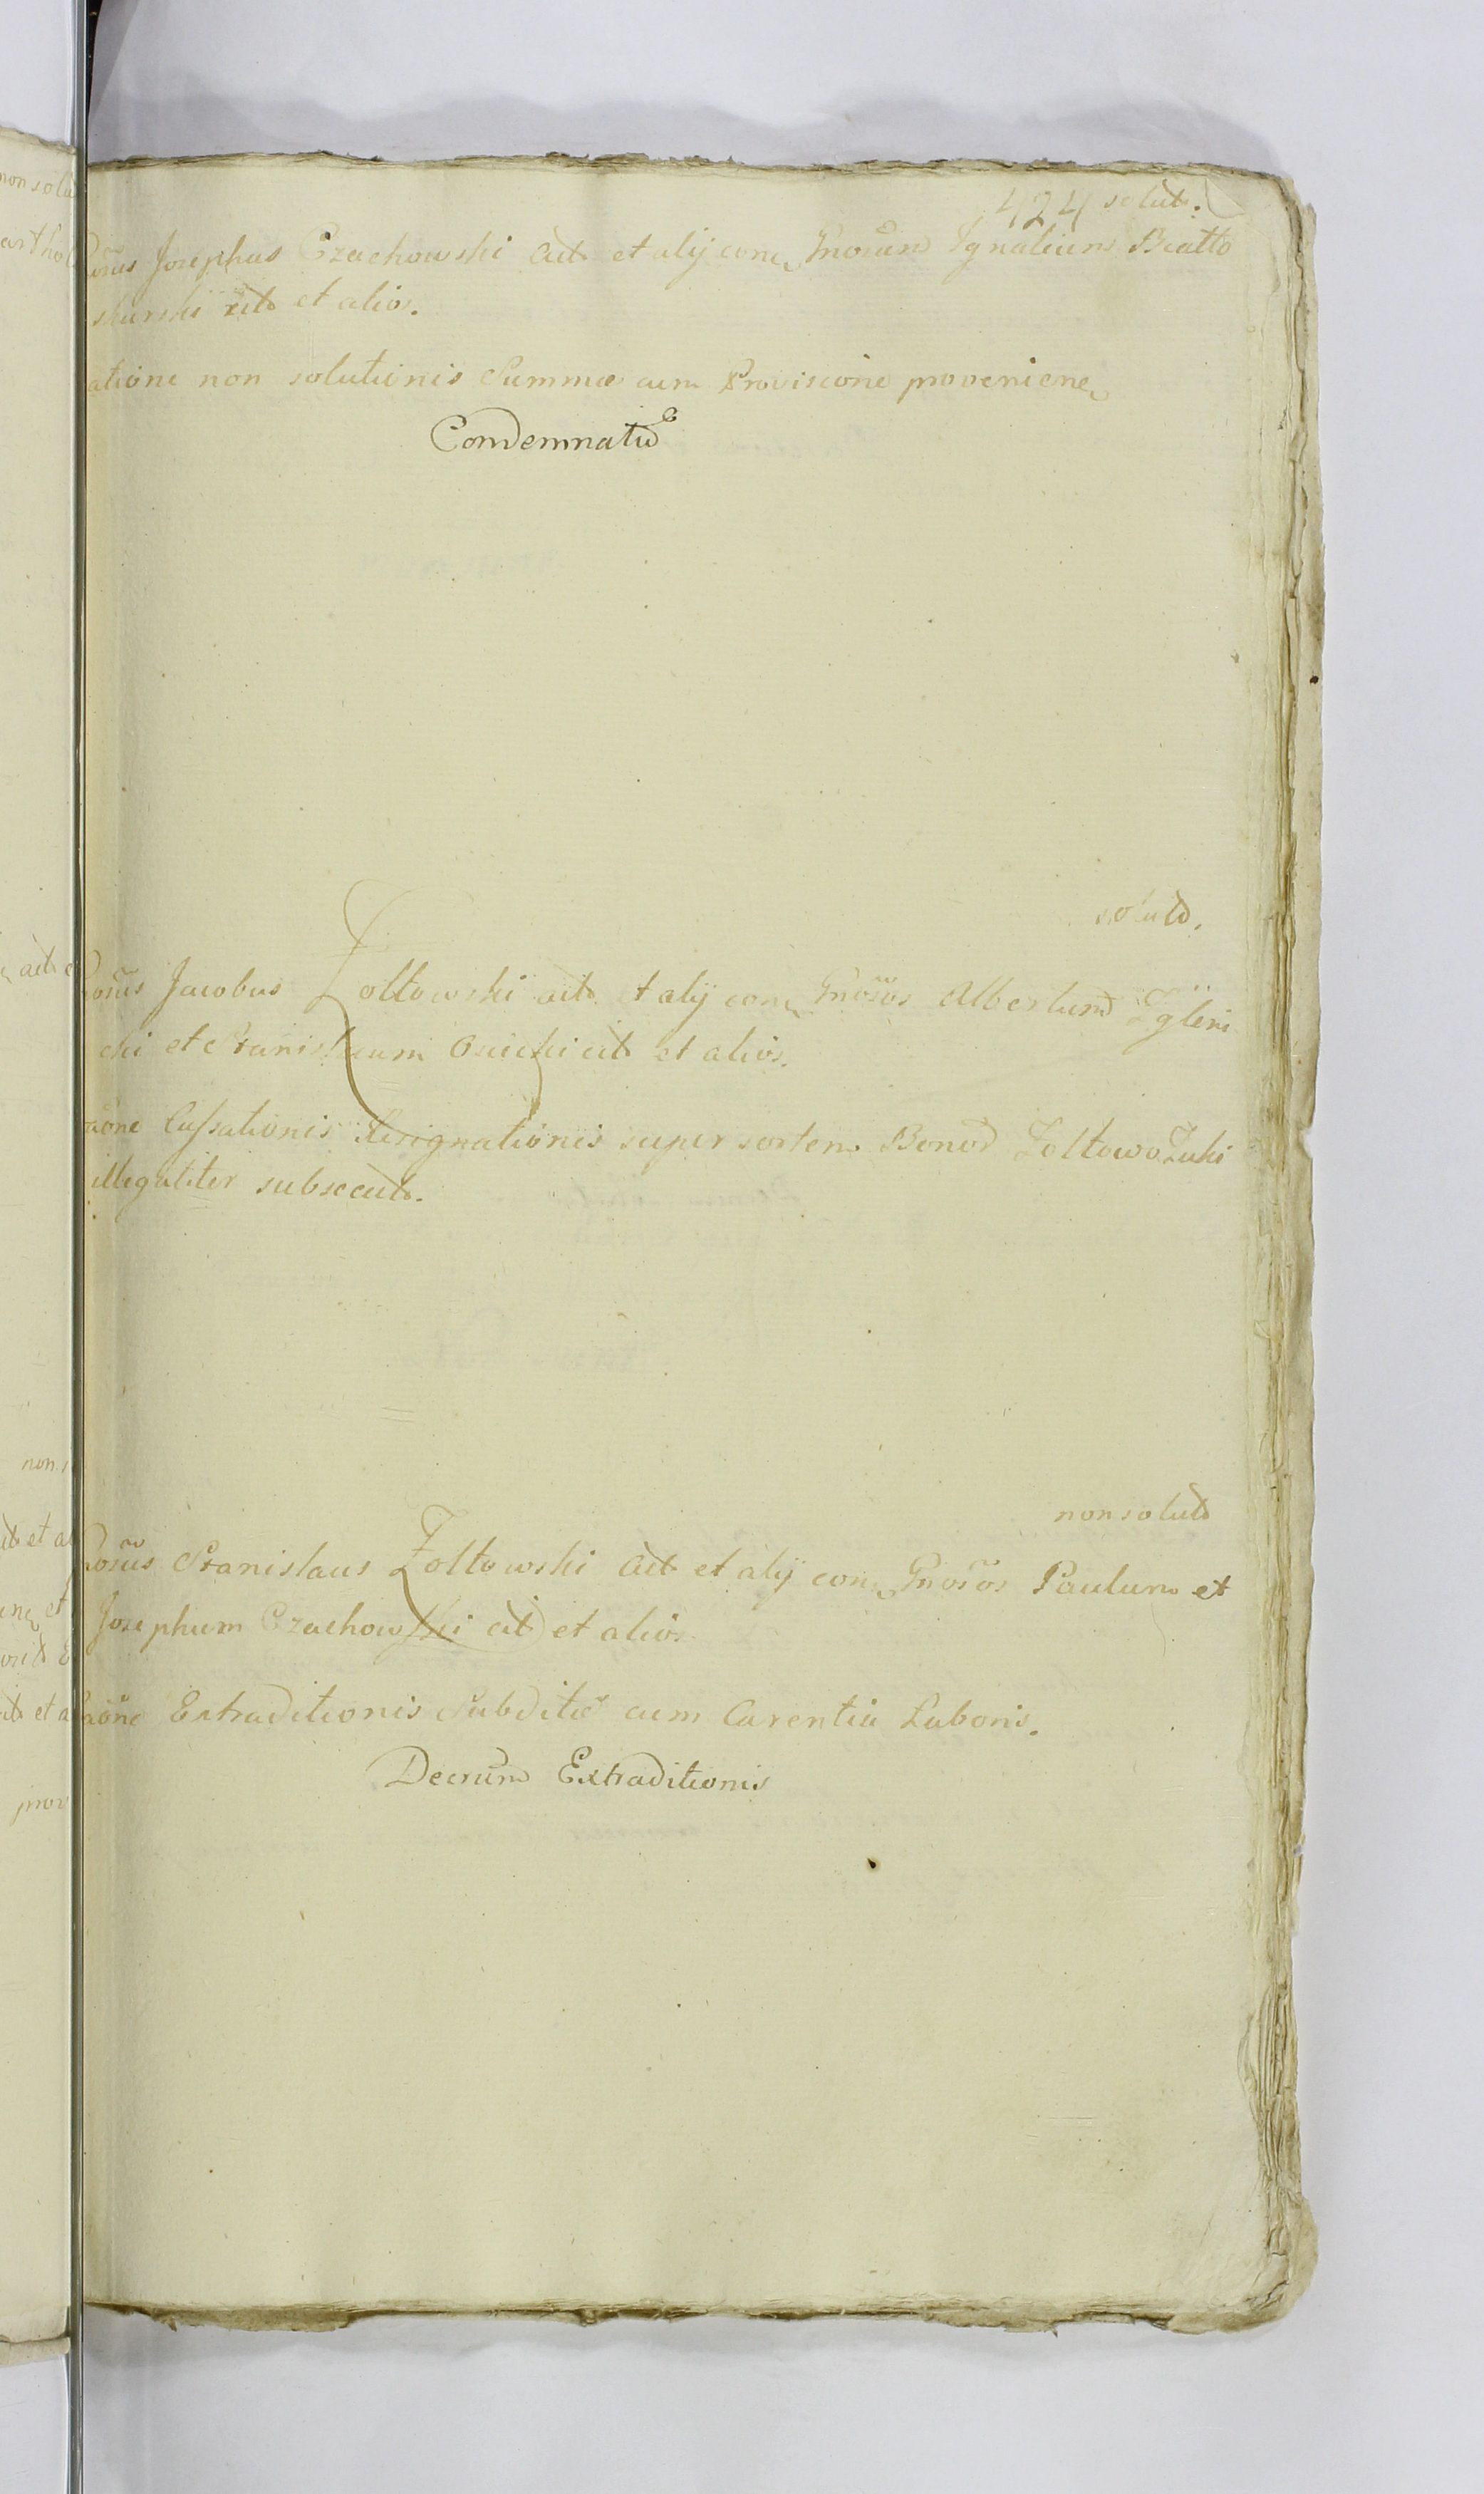 424 solut.
Josephus Czachowski Act et alij con Gnosum Ignatium Biatto
skurski cit et alios.
atione non solutionis Summæ cum Provisione provenien
Condemnatio
solut.
Jacobus Zoltowski act et alij con Gnosos Albertum Zgleni
cki et Stanislaum Osicki cit et alios.
aone Cassationis Resignationis super sortem Bonor Zoltowo Zuki
illegaliter subsecut.
non solut
Stanislaus Zoltowski Act et alij con Gnosos Paulum et
Josephum Czachowski cit et alios
aone Extraditionis Subditi cum Carentia Laboris.
Decrum Extraditionis